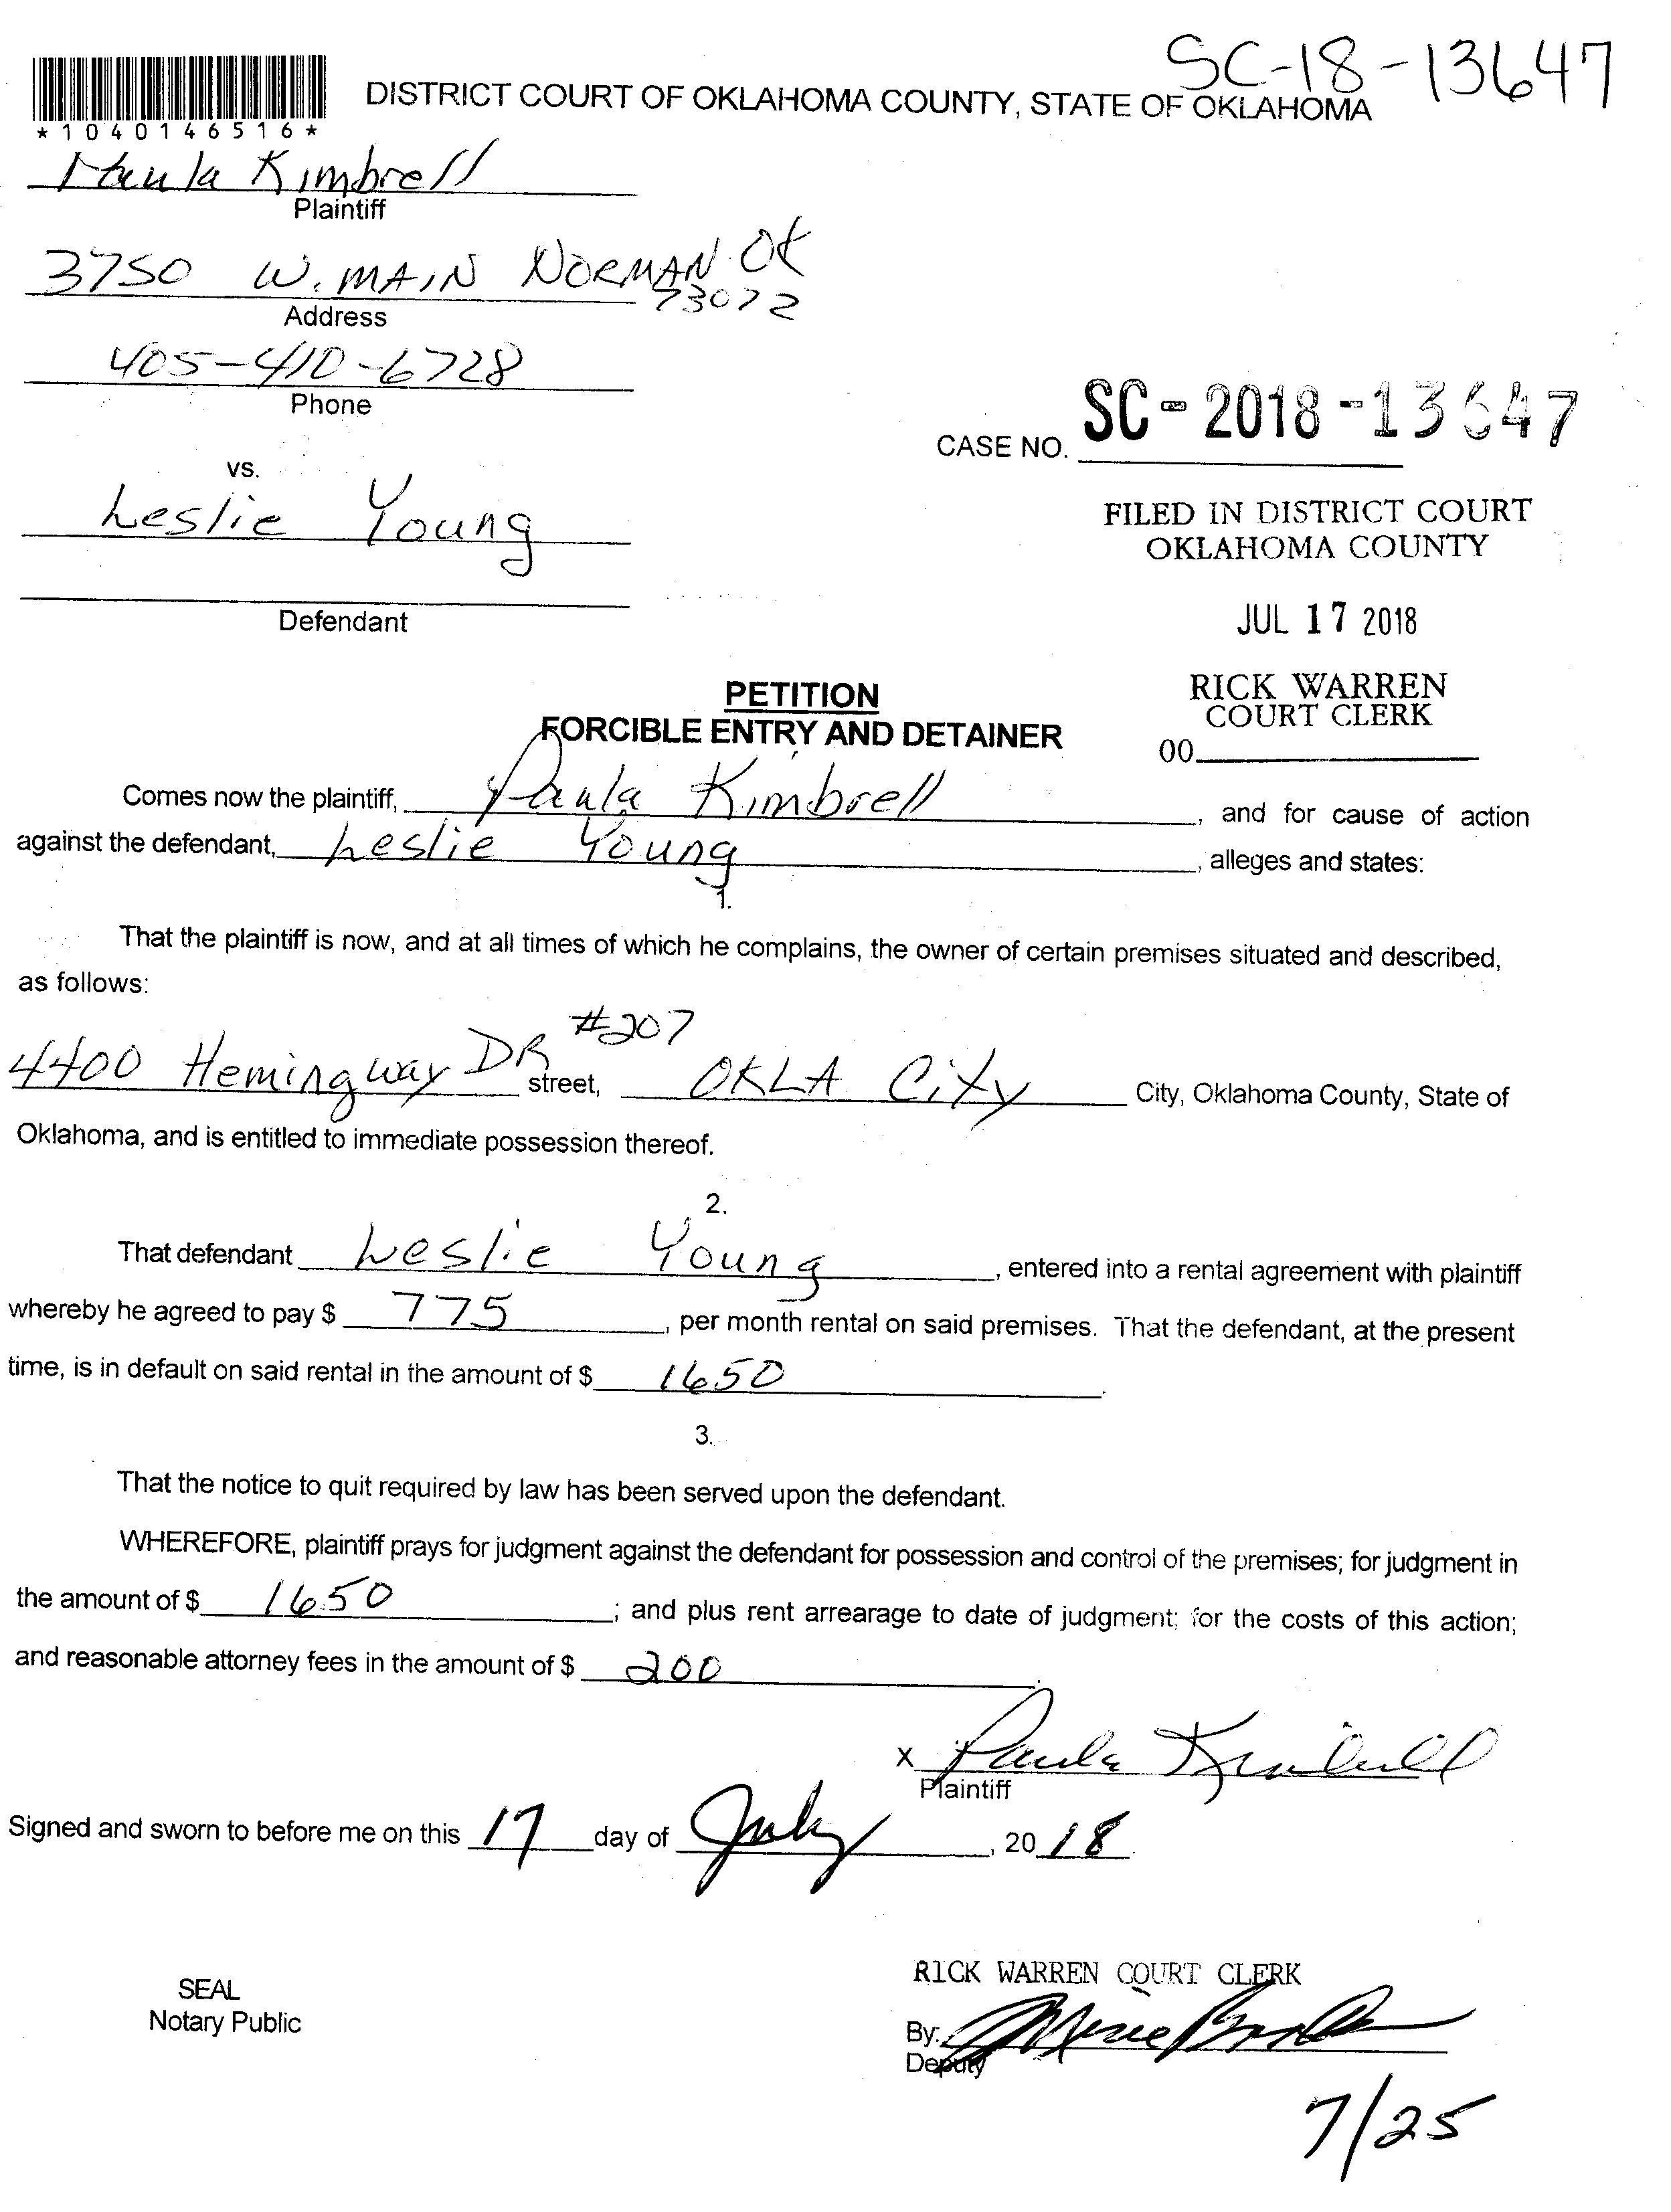 SC-18-13647
DISTRICT COURT OF OKLAHOMA COUNTY, STATE OF OKLAHOMA
*1040146516*
Paula Kimbrell
Plaintiff
3750 W. MAIN NORMAN OK
73072
Address
405-410-6728
Phone
CASE NO. SC-2018-13647
vs.
Leslie Young
FILED IN DISTRICT COURT
OKLAHOMA COUNTY
Defendant
JUL 17 2018
RICK WARREN
COURT CLERK
00
PETITION
FORCIBLE ENTRY AND DETAINER
Comes now the plaintiff, Paula Kimbrell, and for cause of action
against the defendant, Leslie Young, alleges and states:
1.
That the plaintiff is now, and at all times of which he complains, the owner of certain premises situated and described,
as follows:
4400 Hemingway DR #207 street, OKLA City City, Oklahoma County, State of
Oklahoma, and is entitled to immediate possession thereof.
2.
That defendant Leslie Young, entered into a rental agreement with plaintiff
whereby he agreed to pay $ 775, per month rental on said premises. That the defendant, at the present
time, is in default on said rental in the amount of $ 1650.
3.
That the notice to quit required by law has been served upon the defendant.
WHEREFORE, plaintiff prays for judgment against the defendant for possession and control of the premises; for judgment in
the amount of $ 1650; and plus rent arrearage to date of judgment; for the costs of this action;
and reasonable attorney fees in the amount of $ 200.
x Paula Kimbrell
Plaintiff
Signed and sworn to before me on this 17 day of July, 2018
RICK WARREN COURT CLERK
SEAL
Notary Public
By:
Deputy
7/25